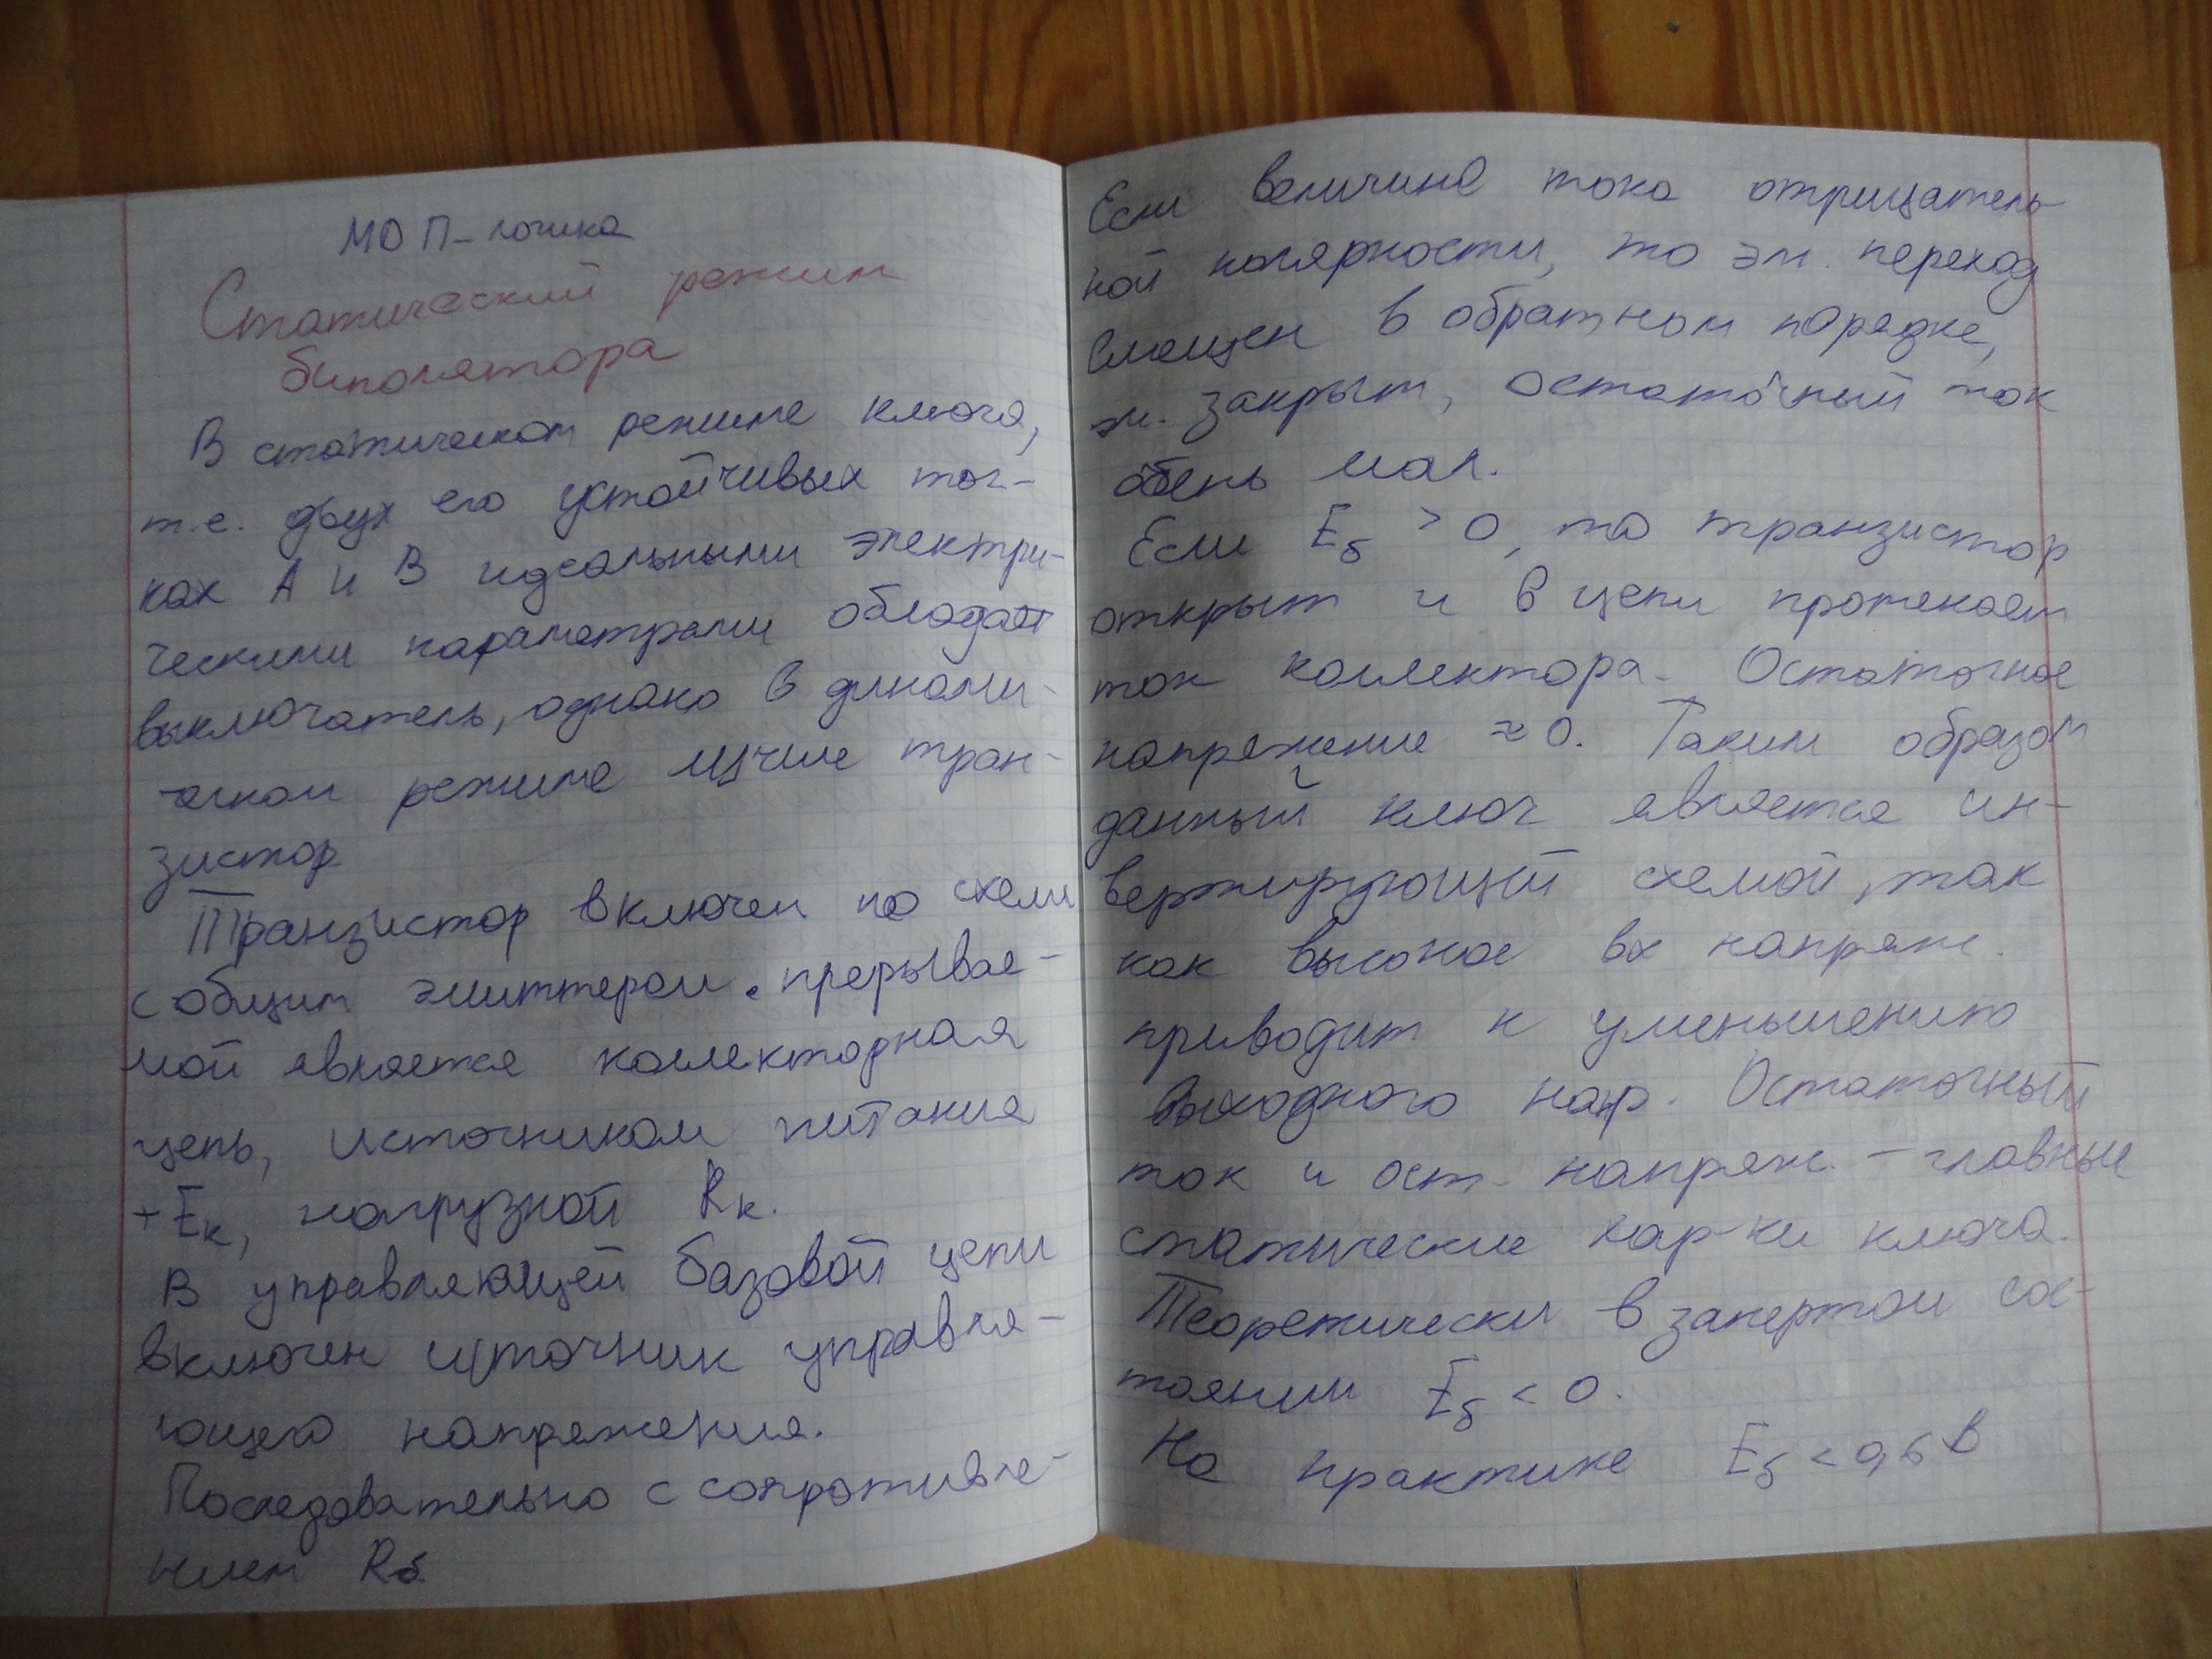 МОП-логика
Статический режим
биполятора
В статическом режиме ключа,
т.е. двух его устойчивых точ-
ках А и В идеальными электри-
ческими параметрами обладает
выключатель, однако в динами-
чном режиме лучше тран-
зистор
Транзистор включен по схеми
с общим эмиттером. прерывае-
мой является коллекторная
цепь, источником питания
+Eк, нагрузкой Rк.
В управляющей базовой цепи
включен источник управля-
ющего напряжения.
Последовательно с сопротивле-
нием Rб
Если величина тока отрицатель-
ной полярности, то эм. переход
смещен в обратном порядке,
эм. закрыт, остаточный ток
очень мал.
Если Eб > 0, то транзистор
открыт и в цепи протекает
ток коллектора. Остаточное
напряжение ≈ 0. Таким образом
данный ключ является ин-
вертирующей схемой, так
как высокое вх напряж.
приводит к уменьшению
выходного напр. Остаточный
ток и ост. напряж. – главные
статические хар-ки ключа.
Теоретически в запертом сос-
тоянии Eб < 0.
На практике Eб < 0,6 В